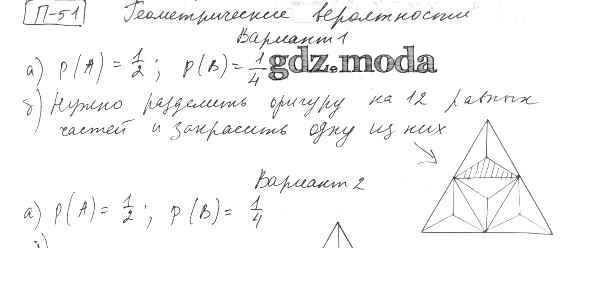 П-51 Геометрические вероятности
Вариант 1
а) P(A) = 1/2; P(B) = 1/4 gdz.moda
б) Нужно разделить фигуру на 12 равных
частей и закрасить одну из них
Вариант 2
а) P(A) = 1/2; P(B) = 1/4